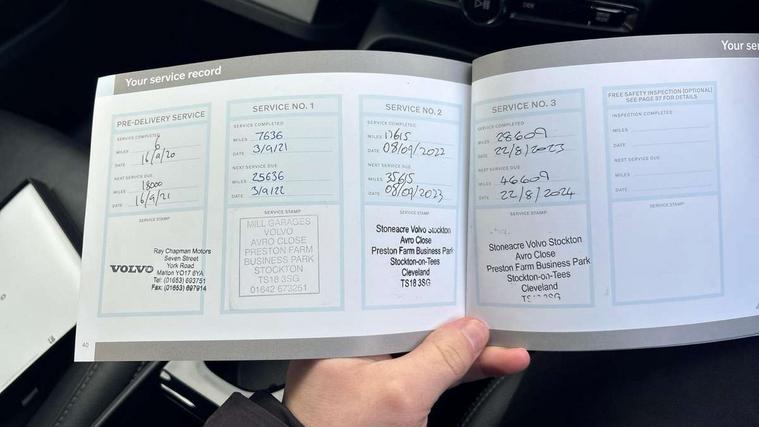 Your service record
PRE-DELIVERY SERVICE
SERVICE COMPLETED
MILES 6
DATE 16/9/20
NEXT SERVICE DUE
MILES 18000
DATE 16/9/21
SERVICE STAMP
VOLVO
Ray Chapman Motors
Seven Street
York Road
Malton YO17 6YA
Tel: (01653) 693751
Fax: (01653) 697914
SERVICE NO. 1
SERVICE COMPLETED
MILES 7636
DATE 3/9/21
NEXT SERVICE DUE
MILES 25636
DATE 3/9/22
SERVICE STAMP
MILL GARAGES
VOLVO
AVRO CLOSE
PRESTON FARM
BUSINESS PARK
STOCKTON
TS18 3SG
01642 673251
SERVICE NO. 2
SERVICE COMPLETED
MILES 17615
DATE 08/09/2022
NEXT SERVICE DUE
MILES 35615
DATE 08/09/2023
SERVICE STAMP
Stoneacre Volvo Stockton
Avro Close
Preston Farm Business Park
Stockton-on-Tees
Cleveland
TS18 3SG
40
Your ser
SERVICE NO. 3
SERVICE COMPLETED
MILES 28609
DATE 22/8/2023
NEXT SERVICE DUE
MILES 46609
DATE 22/8/2024
SERVICE STAMP
Stoneacre Volvo Stockton
Avro Close
Preston Farm Business Park
Stockton-on-Tees
Cleveland
FREE SAFETY INSPECTION (OPTIONAL)
SEE PAGE 37 FOR DETAILS
INSPECTION COMPLETED
MILES
DATE
NEXT SERVICE DUE
MILES
DATE
SERVICE STAMP